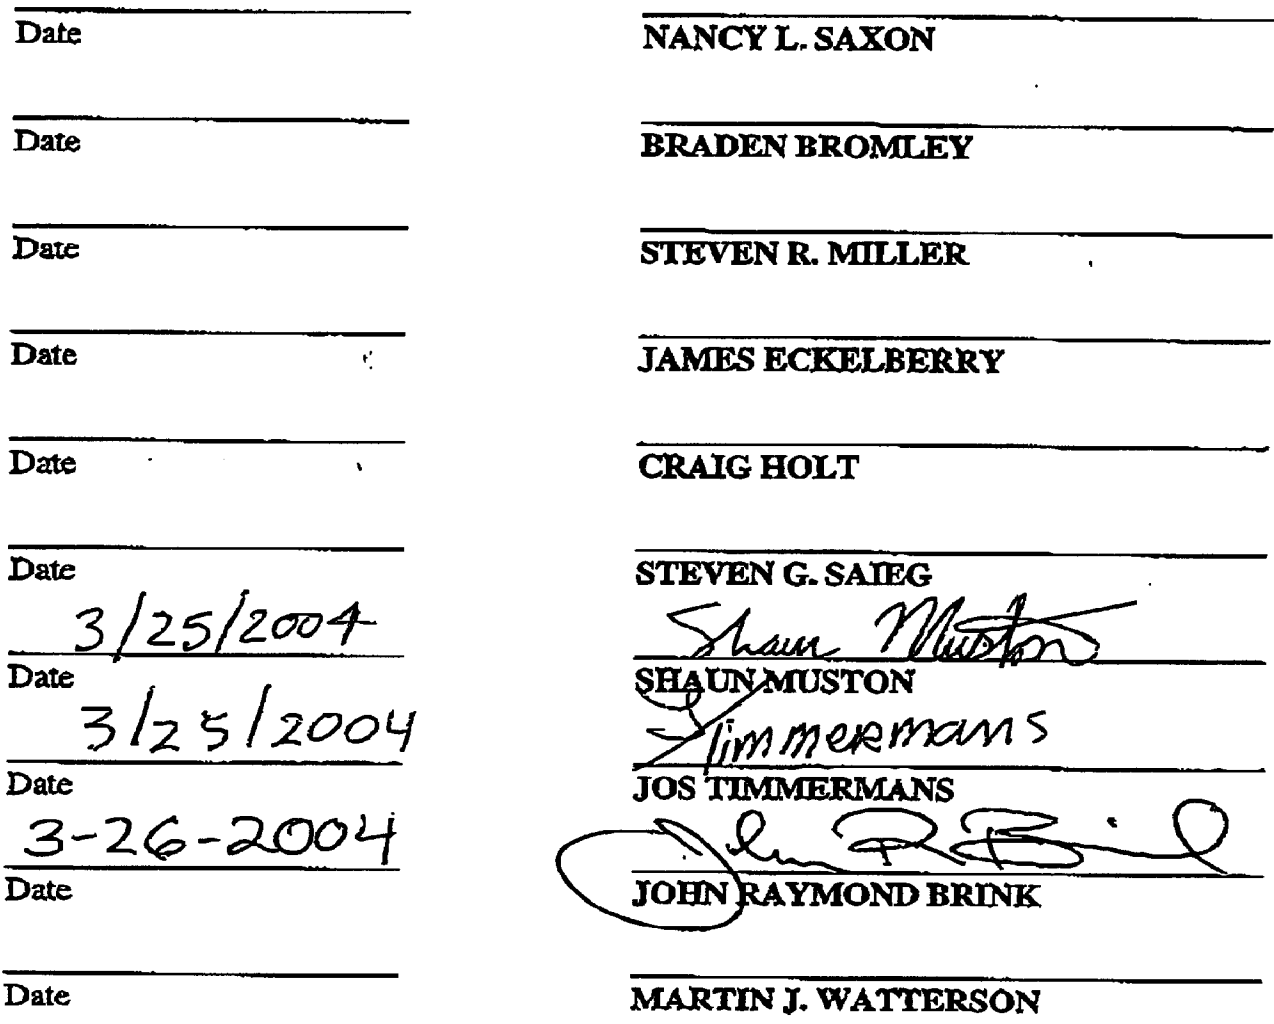 Date NANCY L. SAXON
Date BRADEN BROMLEY
Date STEVEN R. MILLER
Date JAMES ECKELBERRY
Date CRAIG HOLT
Date STEVEN G. SAIEG
3/25/2004 Shaun Muston
Date SHAUN MUSTON
3/25/2004 Timmermans
Date JOS TIMMERMANS
3-26-2004 John R Brink
Date JOHN RAYMOND BRINK
Date MARTIN J. WATTERSON